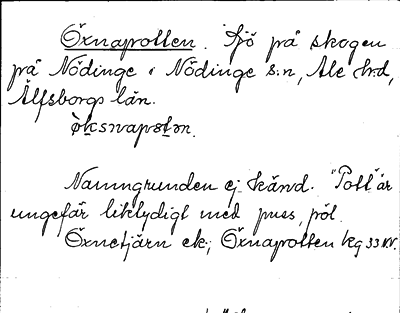 Öxnapotten. Sjö på skogen
på Nödinge i Nödinge s:n, Ale h:d,
Älfsborgs län.
Namngrunden ej känd. "Pott" är
ungefär liktydigt med puss, pöl.
Öxnetjärn ek; Öxnapotten kg 33 NV.